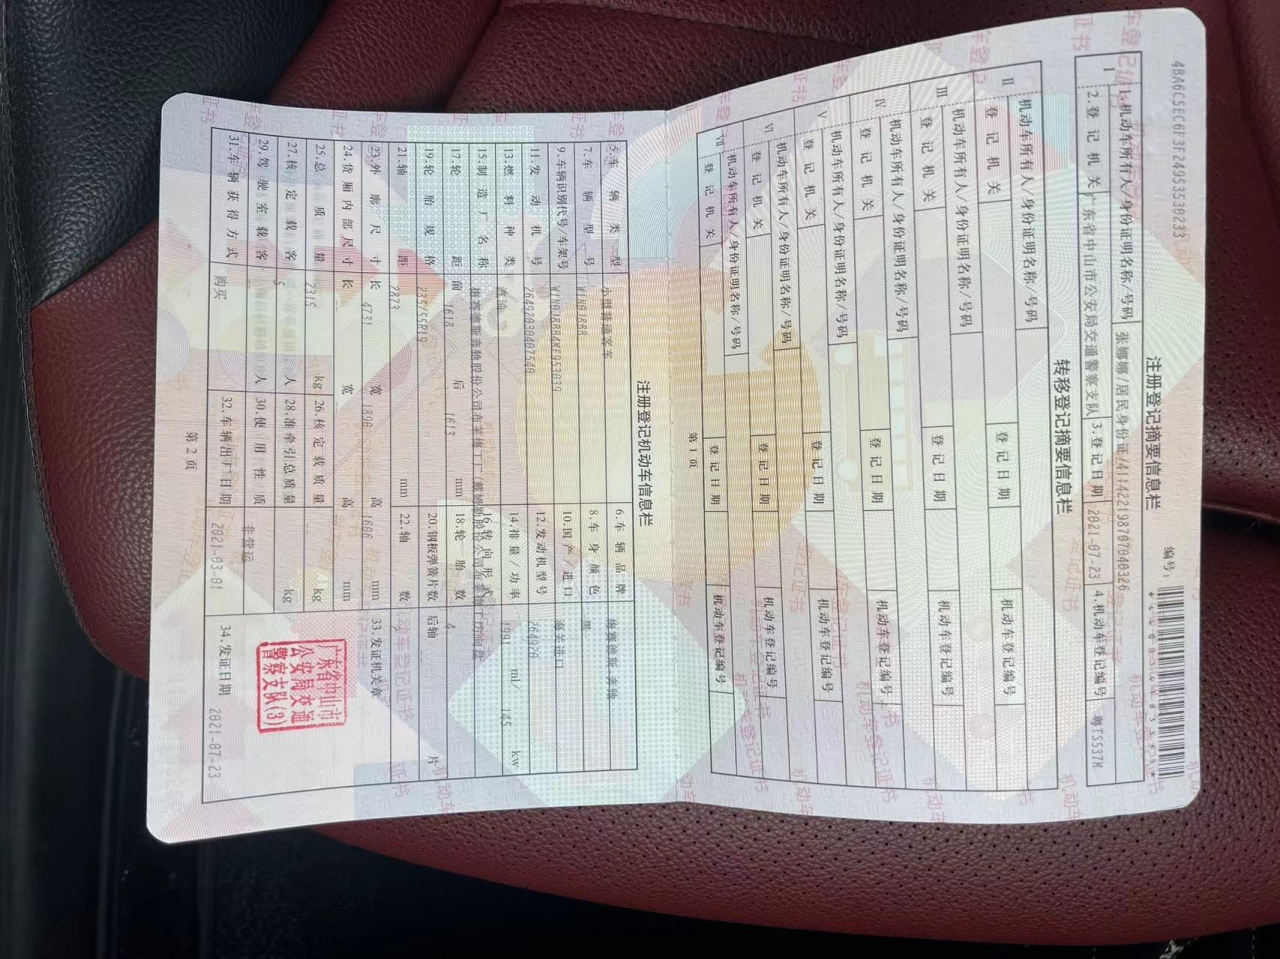 4BA6C5EC6F3F24953530233
编号：
注册登记摘要信息栏
I
1.机动车所有人/身份证明名称/号码 张娜娜/居民身份证/411422198707040326
2.登记机关 广东省中山市公安局交通警察支队 3.登记日期 2021-07-23 4.机动车登记编号 粤T5537M
转移登记摘要信息栏
II
机动车所有人/身份证明名称/号码
登记机关 登记日期 机动车登记编号
III
机动车所有人/身份证明名称/号码
登记机关 登记日期 机动车登记编号
IV
机动车所有人/身份证明名称/号码
登记机关 登记日期 机动车登记编号
V
机动车所有人/身份证明名称/号码
登记机关 登记日期 机动车登记编号
VI
机动车所有人/身份证明名称/号码
登记机关 登记日期 机动车登记编号
VII
机动车所有人/身份证明名称/号码
登记机关 登记日期 机动车登记编号
第1页
注册登记机动车信息栏
5.车辆类型 小型普通客车 6.车辆品牌 梅赛德斯-奔驰
7.车辆型号 8.车身颜色 黑
9.车辆识别代号/车架号 10.国产/进口 海关进口
11.发动机号 12.发动机型号 264920
13.燃料种类 汽油 14.排量/功率 1991 ml/ 145 kw
15.制造厂名称 16.转向形式 方向盘
17.轮距 前 1618 后 1613 mm 18.轮胎数 4
19.轮胎规格 235/55R19 20.钢板弹簧片数 后轴 片
21.轴距 2873 mm 22.轴数
23.外廓尺寸 长 4731 宽 1890 高 mm
24.货厢内部尺寸 长 宽 高 mm
25.总质量 2315 kg 26.核定载质量 kg
27.核定载客 5 人 28.准牵引总质量 kg
29.驾驶室载客 人 30.使用性质 非营运
31.车辆获得方式 购买 32.车辆出厂日期 2021-03-01
33.发证机关章
广东省中山市
公安局交通
警察支队(3)
34.发证日期 2021-07-23
第2页